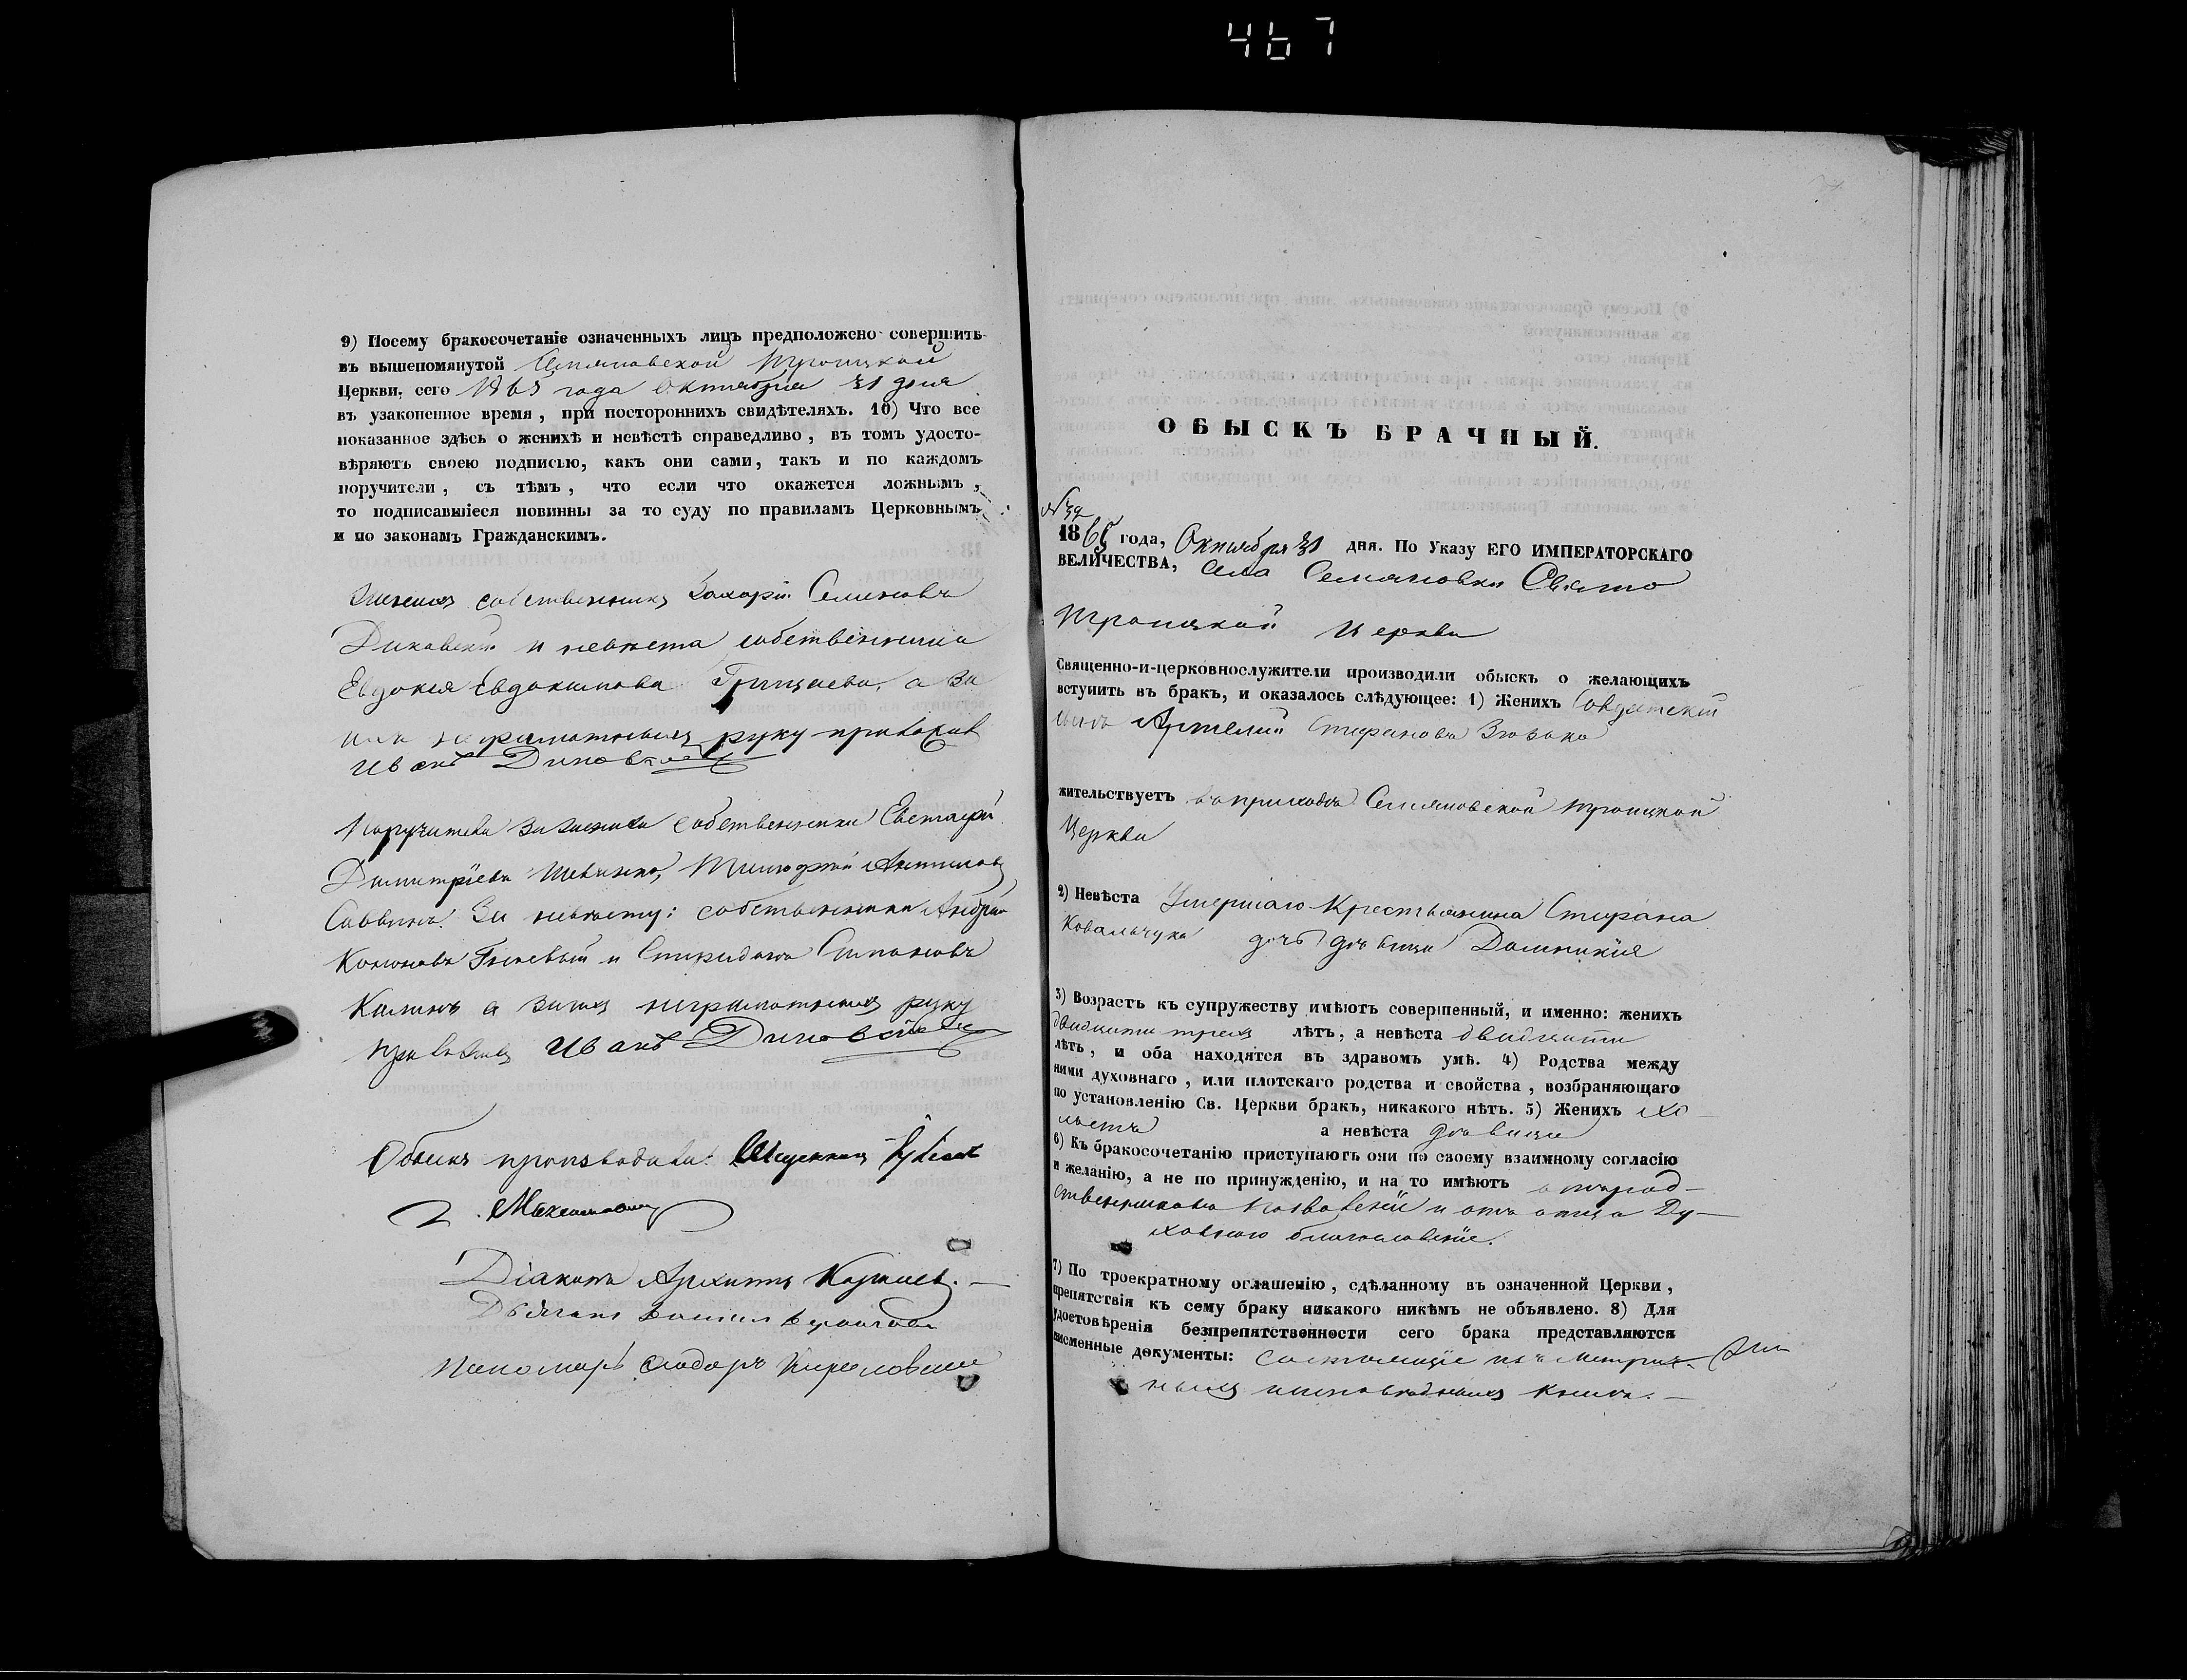 467
9) Посему бракосочетаніе означенныхъ лицъ предположено совершить
въ вышепомянутой Семяновской Троицкой
Церкви, сего 1865 года Октября 31 дня
въ узаконенное время, при постороннихъ свидѣтеляхъ. 10) Что все
показанное здѣсь о женихѣ и невѣстѣ справедливо, въ томъ удосто-
вѣряютъ своею подписью, какъ они сами, такъ и по каждомъ
поручители, съ тѣмъ, что если что окажется ложнымъ,
то подписавшіеся повинны за то суду по правиламъ Церковнымъ
и по законамъ Гражданскимъ.
Женихъ собственникъ Захарій Семеновъ
и невѣста собственница
Евдокія Евдокимова а за
нихъ неграмотныхъ руку приложил
Иванъ
Поручители за жениха собственники Евстафій
Димитріевъ Тимофей Антиповъ
Саввинъ. За невѣсту: собственники Андрей
и Спиридонъ
а за нихъ неграмотныхъ руку
приложилъ Иванъ
Обыскъ производили: Священникъ
Діаконъ
Дьячекъ
Пономарь Сидоръ
ОБЫСКЪ БРАЧНЫЙ.
1865 года, Октября 31 дня. По Указу ЕГО ИМПЕРАТОРСКАГО
ВЕЛИЧЕСТВА, Села Семяновки Свято
Троицкой Церкви
Священно-и-церковнослужители производили обыскъ о желающихъ
вступить въ бракъ, и оказалось слѣдующее: 1) Женихъ Солдатскій
сынъ Стефановъ
жительствуетъ въ приходѣ Семяновской Троицкой
Церкви
2) Невѣста Умершаго Крестьянина Стефана
Ковальчука дочь дѣвица Домникія
3) Возрастъ къ супружеству имѣютъ совершенный, и именно: женихъ
двадцати трехъ лѣтъ, а невѣста двадцати
лѣтъ, и оба находятся въ здравомъ умѣ. 4) Родства между
ними духовнаго, или плотскаго родства и свойства, возбраняющаго
по установленію Св. Церкви бракъ, никакого нѣтъ. 5) Женихъ хо-
лостъ а невѣста дѣвица
6) Къ бракосочетанію приступаютъ они по своему взаимному согласію
и желанію, а не по принужденію, и на то имѣютъ отъ род-
ственниковъ позволеніе и отъ отца Ду-
ховнаго благословеніе.
7) По троекратному оглашенію, сдѣланному въ означенной Церкви,
препятствія къ сему браку никакого никѣмъ не объявлено. 8) Для
удостовѣренія безпрепятственности сего брака представляются
письменные документы: состоящіе изъ Метрич-
ныхъ исповѣдныхъ книгъ.